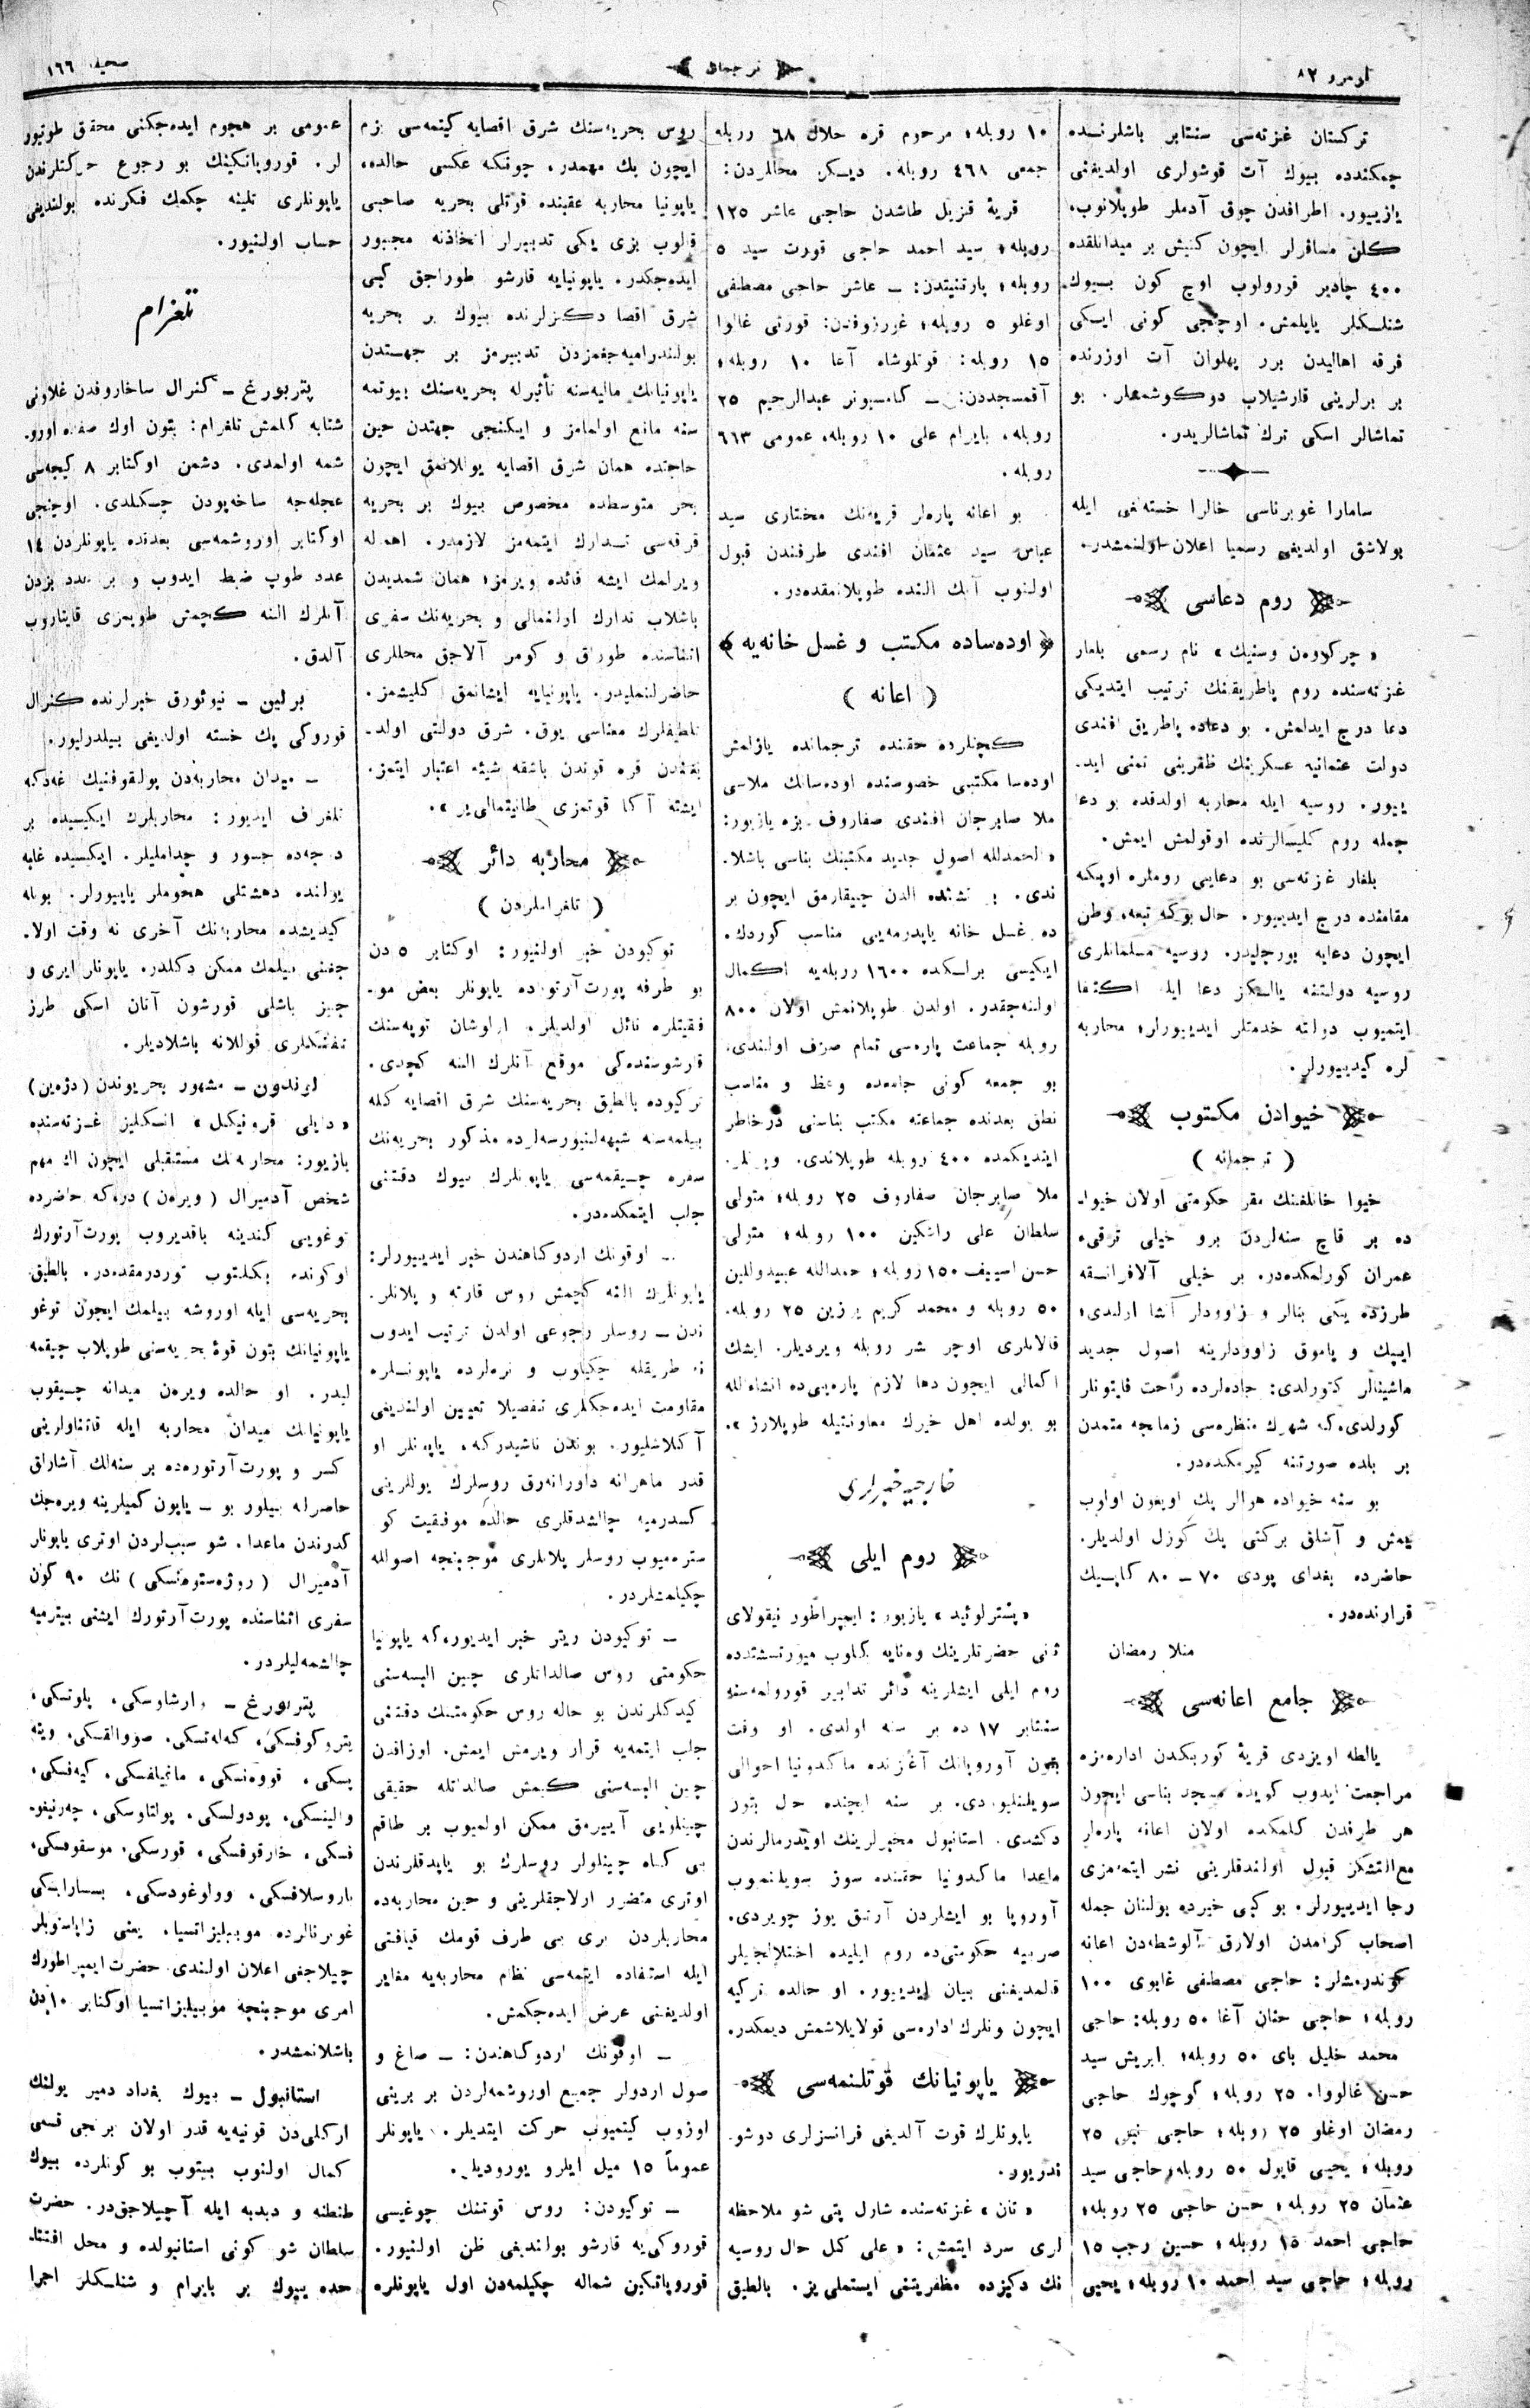 نومرو ٨٢
ترجمان
صحیفه ١٦٦
تركستان غزته‌سی سنتابر باشلرنده
چمكندده بیوك آت قوشولری اولدیغنی
یازییور. اطرافدن چوق آدملر طوپلانوب،
كلن مسافرلر ایچون كنیش بر میدانلقده
٤٠٠ چادیر قورولوب اوچ كون بیوك
شنلكلر یاپلمش. اوچنجی كونی ایكی
فرقه اهالیدن برر پهلوان آت اوزرنده
بر برلرینی قارشیلاب دوكوشمشلر. بو
تماشالر اسكی ترك تماشالریدر.
سامارا غوبرناسی خالرا خسته‌لغی ایله
بولاشق اولدیغی رسمیا اعلان اولنمشدر.
روم دعاسی
« چركوون وستیك » نام رسمی بلغار
غزته‌سنده روم پاطریقنك ترتیب ایتدیكی
دعا درج ایدلمش. بو دعاده پاطریق افندی
دولت عثمانیه عسكرینك ظفرینی تمنی اید.
ییور. روسیه ایله محاربه اولدقده بو دعا
جمله روم كلیسالرنده اوقولمش ایمش.
بلغار غزته‌سی بو دعایی روملره اوپكه
مقامنده درج ایدییور. حال بوكه تبعه، وطن
ایچون دعایه بورجلیدر. روسیه مسلمانلری
روسیه دولتنه یالكز دعا ایله اكتفا
ایتمیوب دولته خدمتلر ایدییورلر؛ محاربه
لره كیدییورلر.
خیوادن مكتوب
( ترجمانه )
خیوا خانلغنك مقر حكومتی اولان خیوا.
ده بر قاچ سنه‌لردن برو خیلی ترقیء
عمران كورلمكده‌در. بر خیلی آلافرانسقه
طرزده یكی بنالر و زاوودلر آنشا اولندی؛
ایپك و پاموق زاوودلرینه اصول جدید
ماشینالر كتورلدی: جاده‌لرده راحت فایتونلر
كورلدی، كه شهرك منظره‌سی زمانجه متمدن
بر بلده صورتنه كیرمكده‌در.
بو سنه خیواده هوالر پك اویغون اولوب
یمش و آشلق بركتی پك كوزل اولدیلر.
حاضرده بغدای پودی ٧٠ – ٨٠ كاپیك
قرارنده‌در.
منلا رمضان
جامع اعانه‌سی
یالطه اویزدی قریۀ كوربكدن اداره‌مزه
مراجعت ایدوب كویده مسجد بناسی ایچون
هر طرفدن كلمكده اولان اعانه پاره‌لر
مع‌التشكر قبول اولندقلرینی نشر ایتمه‌مزی
رجا ایدییورلر. بو كبی خیرده بولنان جمله
اصحاب كرامدن اولارق آلوشطه‌دن اعانه
كوندرمشلر: حاجی مصطفی غابوی ١٠٠
روبله؛ حاجی حنان آغا ٥٠ روبله: حاجی
محمد خلیل بای ٥٠ روبله؛ ابریش سید
حسن غالووا. ٢٥ روبله؛ كوچوك حاجی
رمضان اوغلو ٢٥ روبله؛ حاجی نبی ٢٥
روبله؛ یحیی قاپول ٥٠ روبله، حاجی سید
عثمان ٢٥ روبله؛ حسن حاجبی ٢٥ روبله؛
حاجی احمد ١٥ روبله؛ حسین رجب ١٥
روبله؛ حاجی سید احمد ١٠ روبله؛ یحیی
١٠ روبله؛ مرحوم قره حلاك ٦٨ روبله
جمعی ٤٦٨ روبله. دیكر محاللردن:
قریۀ قنزیل طاشدن حاجی عاشر ١٢٥
روبله؛ سید احمد حاجی قورت سید ٥
روبله؛ پارتنیتدن: – عاشر حاجی مصطفی
اوغلو ٥ روبله؛ غورزوفدن: قورتی غالوا
١٥ روبله: قوتلوشاه آغا ١٠ روبله؛
آقمسجددن: – كامسیونر عبدالرحیم ٢٥
روبله، بایرام علی ١٠ روبله، عمومی ٦٦٣
روبله.
بو اعانه پاره‌لر قریه‌نك مختاری سید
عباس سید عثمان افندی طرفندن قبول
اولنوب آنك الننده طوپلانمقده‌در.
اوده‌ساده مكتب و غسل خانه‌یه
( اعانه )
كچنلرده حقنده ترجمانده یازلمش
اوده‌سا مكتبی خصوصنده اوده‌سانك ملاسی
ملا صابرجان افندی صفاروف بزه یازیور:
« الحمدلله اصول جدید مكتبنك بناسی باشلا.
ندی. بو نشئده الدن چیقارمق ایچون بر
ده غسل خانه یاپدرمه‌یی مناسب كوردك.
ایكیسی برلكده ١٦٠٠ روبله‌یه اكمال
اولنه‌جقدر. اولدن طوپلانمش اولان ٨٠٠
روبله جماعت پاره‌سی تمام صرف اولندی.
بو جمعه كونی جامعده وعظ و مناسب
نطق بعدنده جماعته مكتب بناسنی درخاطر
ایتدیكمده ٤٠٠ روبله طوپلاندی. ویرنلر.
ملا صابرجان صفاروف ٢٥ روبله؛ متولی
سلطان علی رانكین ١٠٠ روبله؛ متولی
حسن اسیپف ١٥٠ روبله؛ حمدالله عبیدوللین
٥٠ روبله و محمد كریم برزین ٢٥ روبله.
قالانلری اوچر شر روبله ویردیلر. ایشك
اكمالی ایچون دها لازم پاره‌یی‌ده انشاءالله
بو یولده اهل خیرك معاونتیله طوپلارز ».
خارجیه خبرلری
روم ایلی
« پشترلوئید » یازیور: ایمپراطور نیقولای
ثانی حضرتلرینك ویانایه كلوب میورتسشتده
روم ایلی ایشلرینه دائر تدابیر قورولمه‌سنه
سنتابر ١٧ ده بر سنه اولدی. او وقت
بتون آوروپانك آغزنده ماكدونیا احوالی
سویلنلیوردی. بر سنه ایچنده حال بتون
دكشدی. استانبول مخبرلرینك اویدرمالرندن
ماعدا ماكدونیا حقنده سوز سویلنمیوب
آوروپا بو ایشلردن آرتق یوز چویردی.
صربیه حكومتی‌ده روم ایلیده اختلالجیلر
قالمدیغنی بیان ایدییور. او حالده تركیه
ایچون ونلرك اداره‌سی قولایلاشمش دیمكدر.
یاپونیانك قوتلنمه‌سی
یاپونلرك قوت آلدیغی فرانسزلری دوشو.
ندریور.
« تان » غزته‌سنده شارل پتی شو ملاحظه
لری سرد ایتمش: « علی كل حال روسیه
نك دكزده مظفریتنی ایستملی‌یز. بالطیق
روس بحریه‌سنك شرق اقصایه كیتمه‌سی بزم
ایچون پك مهمدر. چونكه عكسی حالده،
یاپونیا محاربه عقبنده قوتلی بحریه صاحبی
قالوب بزی یكی تدبیرلر اتخاذنه مجبور
ایده‌جكدر. یاپونیایه قارشو طوراجق كبی
شرق اقصا دكزلرنده بیوك بر بحریه
بولندرامیه‌جغمزدن تدبیرمز بر جهتدن
یاپونیانك مالیه‌سنه تأثیرله بحریه‌سنك بیوتمه
سنه مانع اولمامز و ایكنجی جهتدن حین
حاجتده همان شرق اقصایه یوللانمق ایچون
بحر متوسطده مخصوص بیوك بر بحریه
فرقه‌سی تدارك ایتمه‌مز لازمدر. اهماله
ویرلمك ایشه فائده ویرمز؛ همان شمدیدن
باشلاب تدارك اولنمالی و بحریه‌نك سفری
اثناسنده طوراق و كومر آلاجق محللری
حاضرلنملیدر. یاپونیایه ایشانمق كلیشمز.
لطیفه‌لرك معناسی یوق. شرق دولتی اولد.
یغندن قره قوتدن باشقه شیئه اعتبار ایتمز.
ایشته آكا قوتمزی طانیتمالی‌یز ».
محاربه دائر
( تلغراملردن )
توكیودن خبر اولنیور: اوكتابر ٥ دن
بو طرفه پورت‌آرتورده یاپونلر بعض مو.
فقیتلره نائل اولدیلر. ارلوشان توپه‌سنك
قارشوسنده‌كی موقع آنلرك الننه كچدی.
توكیوده بالطیق بحریه‌سنك شرق اقصایه كله
بیلمه‌سنه شبهه‌لنیورسه‌لرده مذكور بحریه‌نك
سفره چیقمه‌سی یاپونلرك بیوك دقتنی
جلب ایتمكده‌در.
– اوقونك اردوكاهندن خبر ایدییورلر:
یاپونلرك الننه كچمش روس قارته و پلانلر.
ندن – روسلر رجوعی اولدن ترتیب ایدوب
نه طریقله چكیلوب و نره‌لرده یاپونلره
مقاومت ایده‌جكلری تفصیلا تعیین اولندیغی
آكلاشلیور. بوندن ناشیدركه، یاپونلر او
قدر ماهرانه داورانه‌رق روسلرك یوللرینی
كسدرمیه چالشدقلری حالده موفقیت كو
ستره‌میوب روسلر پلانلری موجبنجه اصولله
چكیلمشلردر.
– توكیودن ریتر خبر ایدیور، كه یاپونیا
حكومتی روس صالداتلری چین البسه‌سنی
كیدكلرندن بو حاله روس حكومتنك دقتنی
جلب ایتمه‌یه قرار ویرمش ایمش. اوزاقدن
چین البسه‌سنی كیمش صالداتله حقیقی
چینلویی آییرمق ممكن اولمیوب بر طاقم
بی كناه چینلولر روسلرك بو یاپدقلرندن
اوتری متضرر اولاجقلرینی و حین محاربه‌ده
محاربلردن بری بی طرف قومك قیافتی
ایله استفاده ایتمه‌سی نظام محاربه‌یه مغایر
اولدیغنی عرض ایده‌جكمش.
– اوقونك اردوكاهندن: – صاغ و
صول اردولر جمیع اوروشمه‌لردن بر برینی
اوزوب كیتمیوب حركت ایتدیلر. یاپونلر
عموماً ١٥ میل ایلرو یورودیلر.
– توكیودن: روس قوتنك چوغیسی
قوروكی‌یه قارشو بولندیغی ظن اولنیور.
قوروپاتكین شماله چكیلمه‌دن اول یاپونلره
عمومی بر هجوم ایده‌جكنی محقق طوتیور
لر. قوروپاتكینك بو رجوع حركتلرندن
یاپونلری تلینه چكمك فكرنده بولندیغی
حساب اولنیور.
تلغرام
پتربورغ – كنرال ساخاروفدن غلاونی
شتابه كلمش تلغرام: بتون اوك صفده اورو.
شمه اولمدی. دشمن اوكتابر ٨ كیجه‌سی
عجله‌جه ساخه‌پودن چكلدی. اوچنجی
اوكتابر اوروشمه‌سی بعدنده یاپونلردن ١٤
عدد طوپ ضبط ایدوب و بر عدد بزدن
آنلرك الننه كچمش طوپمزی قایتاروب
آلدق.
برلین – نیوئورق خبرلرنده كنرال
قوروكی پك خسته اولدیغی بیلدرلیور.
– میدان محاربه‌دن پولقوفنیك غه‌دكه
تلغراف ایدیور: محاربلرك ایكیسیده بر
درجه‌ده جسور و چداملیلر. ایكیسیده غلبه
یولنده دهشتلی هجوملر یاپیورلر. بویله
كیدیشده محاربه‌نك آخری نه وقت اولا.
جغنی بیلمك ممكن دكلدر. یاپونلر ایری و
جیز باشلی قورشون آتان اسكی طرز
تفنكلری قوللانه باشلادیلر.
لوندون – مشهور بحریوندن (دژه‌ین)
« دایلی قرونیكل » انكلیز غزته‌سنده
یازیور: محاربه‌نك مستقبلی ایچون اك مهم
شخص آدمیرال (ویره‌ن) دركه حاضرده
توغویی كندینه باقدیروب پورت‌آرتورك
اوكونده بكلتوب توردرمقده‌در. بالطیق
بحریه‌سی ایله اوروشه بیلمك ایچون توغو
یاپونیانك بتون قوۀ بحریه‌سنی طوپلاب چیقمه
لیدر. او حالده ویره‌ن میدانه چیقوب
یاپونیانك میدان محاربه ایله قاتناولرینی
كسر و پورت‌آرتورده بر سنه‌لك آشاراق
حاصرله بیلور بو – یاپون كمیلرینه ویره‌جك
كدرندن ماعدا. شو سببلردن اوتری یاپونلر
آدمیرال (روژه‌ستوه‌نسكی) نك ٩٠ كون
سفری اثناسنده پورت‌آرتورك ایشنی بیترمیه
چالشمه‌لیلردر.
پتربورغ – وارشاوسكی، پلوتسكی،
پتروكوفسكی، كه‌له‌تسكی، صووالقسكی، ویته
بسكی، قووه‌نسكی، ماغیلفسكی، كیه‌فسكی،
والینسكی، پودولسكی، پولتاوسكی، چه‌رنیغو.
فسكی، خارقوفسكی، قورسكی، موسقوفسكی،
یاروسلافسكی، وولوغودسكی، بسارابسكی
غوبرنالرده موبیلیزاتسیا، یعنی زاپاسنویلر
چیلاجغی اعلان اولندی. حضرت ایمپراطورك
امری موجبنجه موبیلیزاتسیا اوكتابر ١٠ دن
باشلانمشدر.
استانبول – بیوك بغداد دمیر یولنك
اركلی‌دن قونیه‌یه قدر اولان برنجی قسمی
كمال اولنوب بیتوب بو كونلرده بیوك
طنطنه و دبدبه ایله آچیلاجق‌در. حضرت
سلطان شو كونی استانبولده و محل افتتا.
حده بیوك بر بایرام و شنلكلر اجرا